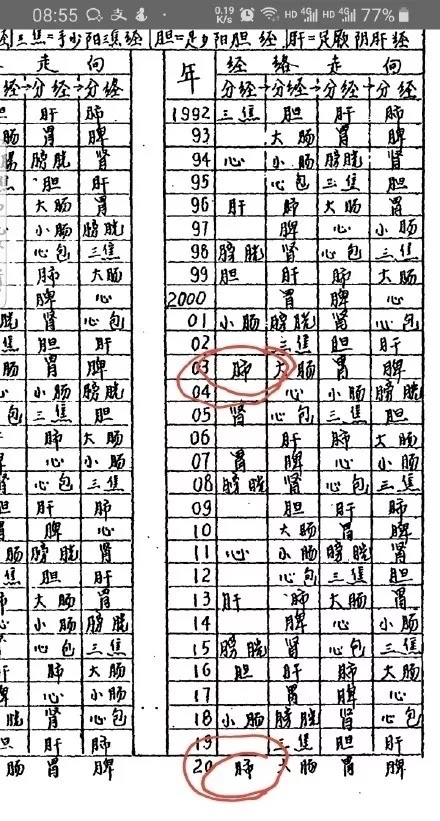 08:55 0.19 K/s HD 4G HD 4G 77%
三焦=手少阳三焦经 胆=足少阳胆经 肝=足厥阴肝经
走向 年 经络走向
经→分经→分络 分经→分络→分经→分络
肝 肺 1992 三焦 胆 肝 肺
肠 胃 脾 93 大肠 胃 脾
膀胱 肾 94 心 小肠 膀胱 肾
胆 肝 95 心包 三焦 胆
大肠 胃 96 肝 肺 大肠 胃
小肠 膀胱 97 脾 心 小肠
心包 三焦 98 膀胱 肾 心包 三焦
肺 大肠 99 胆 肝 肺 大肠
脾 心 2000 胃 脾 心
胱 肾 心包 01 小肠 膀胱 肾 心包
焦 胆 肝 02 三焦 胆 肝
肠 胃 脾 03 肺 大肠 胃 脾
小肠 膀胱 04 心 小肠 膀胱
包 三焦 胆 05 肾 心包 三焦 胆
肺 大肠 06 肝 肺 大肠
心 小肠 07 胃 脾 心 小肠
心包 三焦 08 膀胱 肾 心包 三焦
肝 肺 09 胆 肝 肺
脾 心 10 大肠 胃 脾
肠 膀胱 肾 11 心 小肠 膀胱 肾
焦 胆 肝 12 心包 三焦 胆
大肠 胃 13 肝 肺 大肠 胃
小肠 膀胱 14 脾 心 小肠
心包 三焦 15 膀胱 肾 心包 三焦
肺 大肠 16 胆 肝 肺 大肠
心 小肠 17 胃 脾 心
胱 肾 心包 18 小肠 膀胱 肾 心包
肝 肺 19 三焦 胆 肝
肠 胃 脾 20 肺 大肠 胃 脾